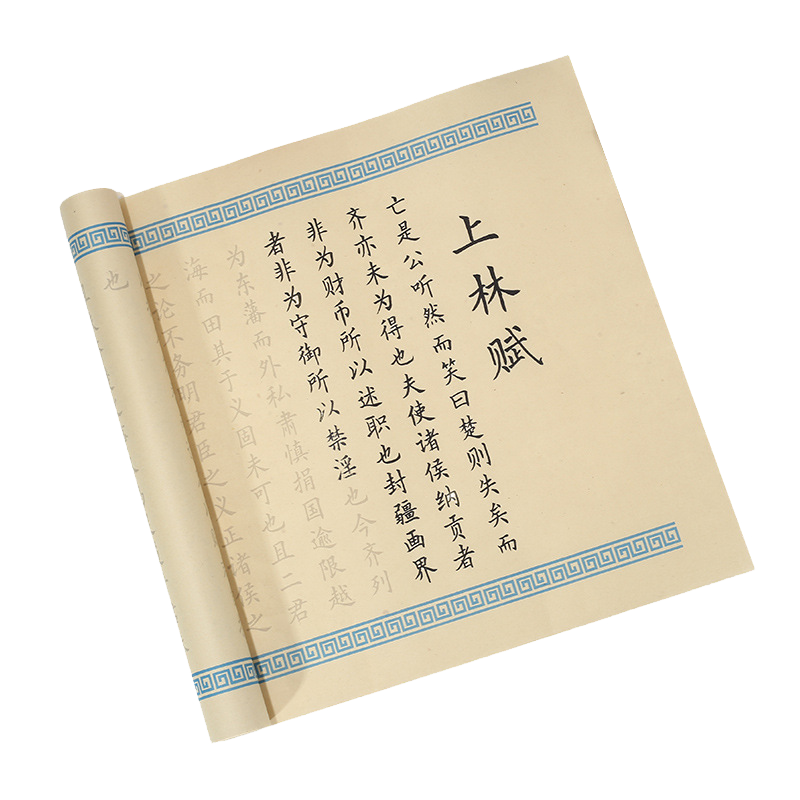 上林赋
亡是公听然而笑曰楚则失矣而
齐亦未为得也夫使诸侯纳贡者
非为财币所以述职也封疆画界
者非为守御所以禁淫也今齐列
为东藩而外私肃慎捐国逾限越
海而田其于义固未可也且二君
之论不务明君臣之义正诸侯之
也